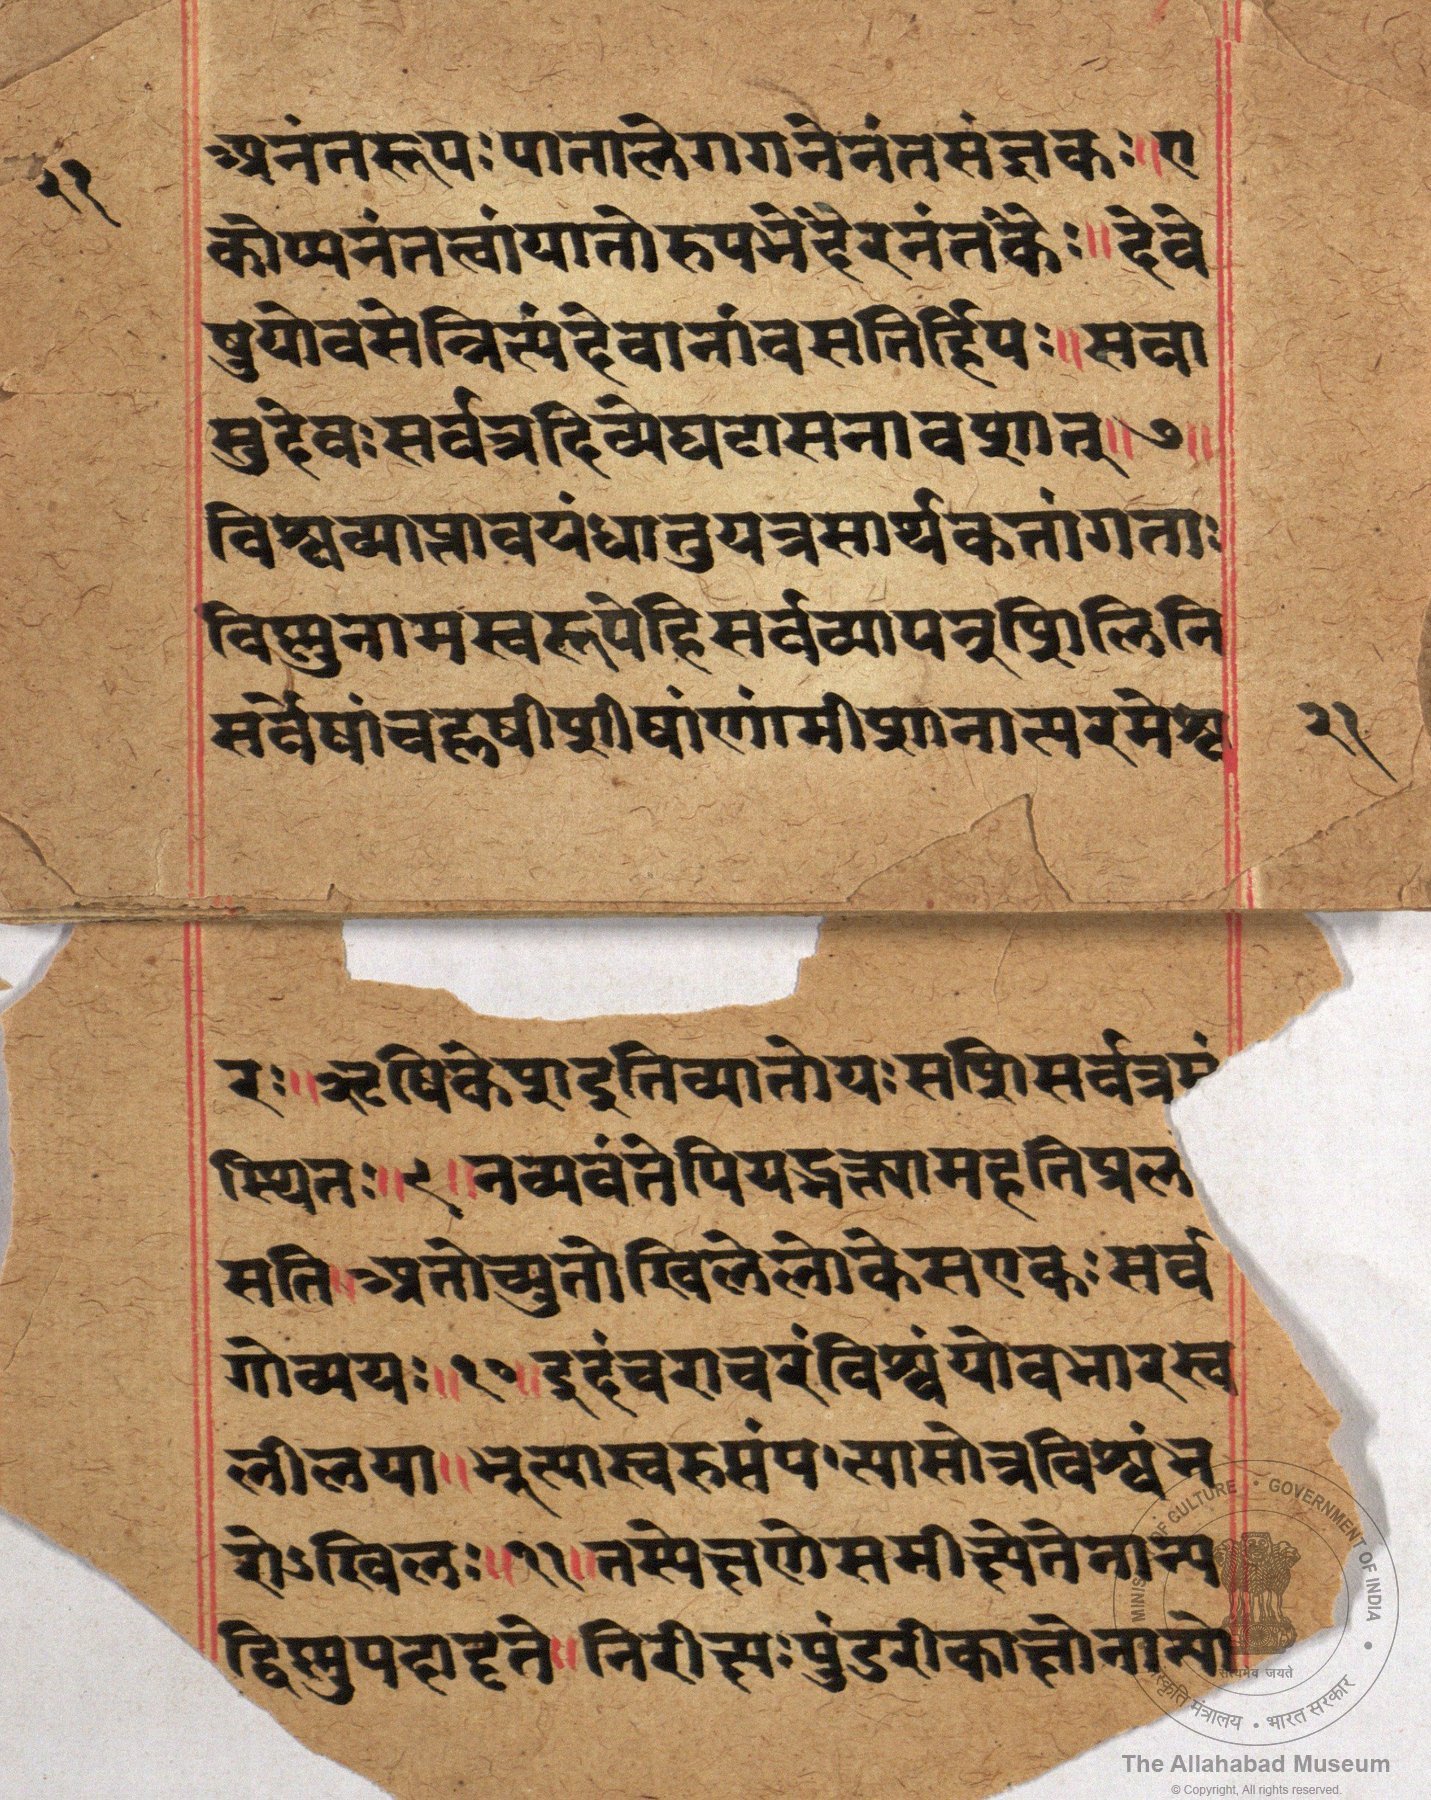 अनंतरूपः पातालेगगनेनंतसंज्ञकः॥ए
२१
कोप्यनंतत्वांयातोरुपभेदैरनंतकैः॥देवे
षुयोवसेन्नित्यंदेवानांवसतिर्हियः॥सवा
सुदेवःसर्वत्रदिव्येघटासनावशात्॥७॥
विश्वव्याप्तावयंधातुयत्रसार्थकतांगताः
विष्णुनामस्वरूपेहिसर्वव्यापनूशिलिनि
सर्वेषांचहृषीशीषांणांमीशानात्परमेश्व
२१
रः॥ऋषिकेशइतिव्यातोयःसशिसर्वत्रसं
स्थितः॥९॥नव्यवंतेपियद्भक्त्यामहतिप्रल
सति॥अतोच्युतोखिलेलोकेसएकःसर्व
गोव्ययः॥१०॥इदंचराचरंविश्वंयोवभारस्व
लीलया॥भूत्यास्वरुसंपत्यासोत्रविश्वंन
रोऽखिलः॥११॥तस्येक्षणेसमीक्ष्येतेनान्य
द्विष्णुपदादृते॥निरीक्ष्यःपुंडरीकाक्षोनासो
MINISTRY OF CULTURE • GOVERNMENT OF INDIA
सत्यमेव जयते
संस्कृति मंत्रालय • भारत सरकार
The Allahabad Museum
© Copyright, All rights reserved.